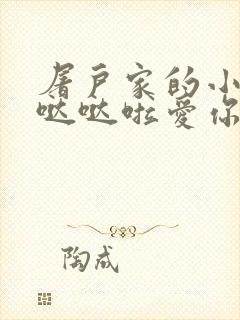 屠户家的小
哒哒啦爱你
陶成